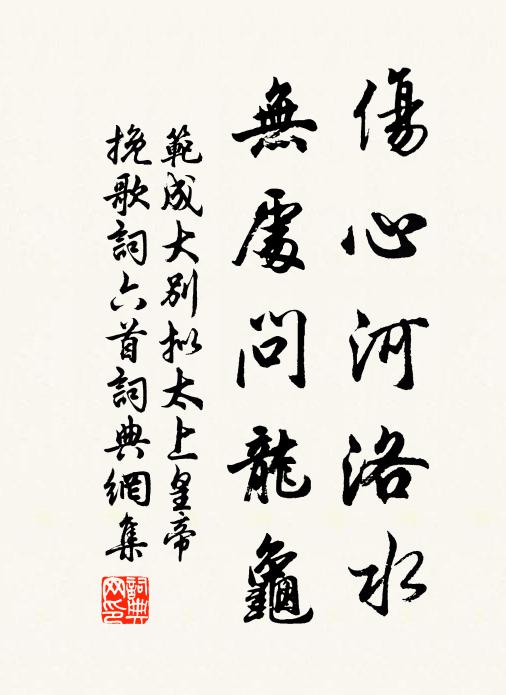 傷心河洛水
無處問龍龜
範成大別擬太上皇帝
挽歌詞六首詞典網集
詞典網印